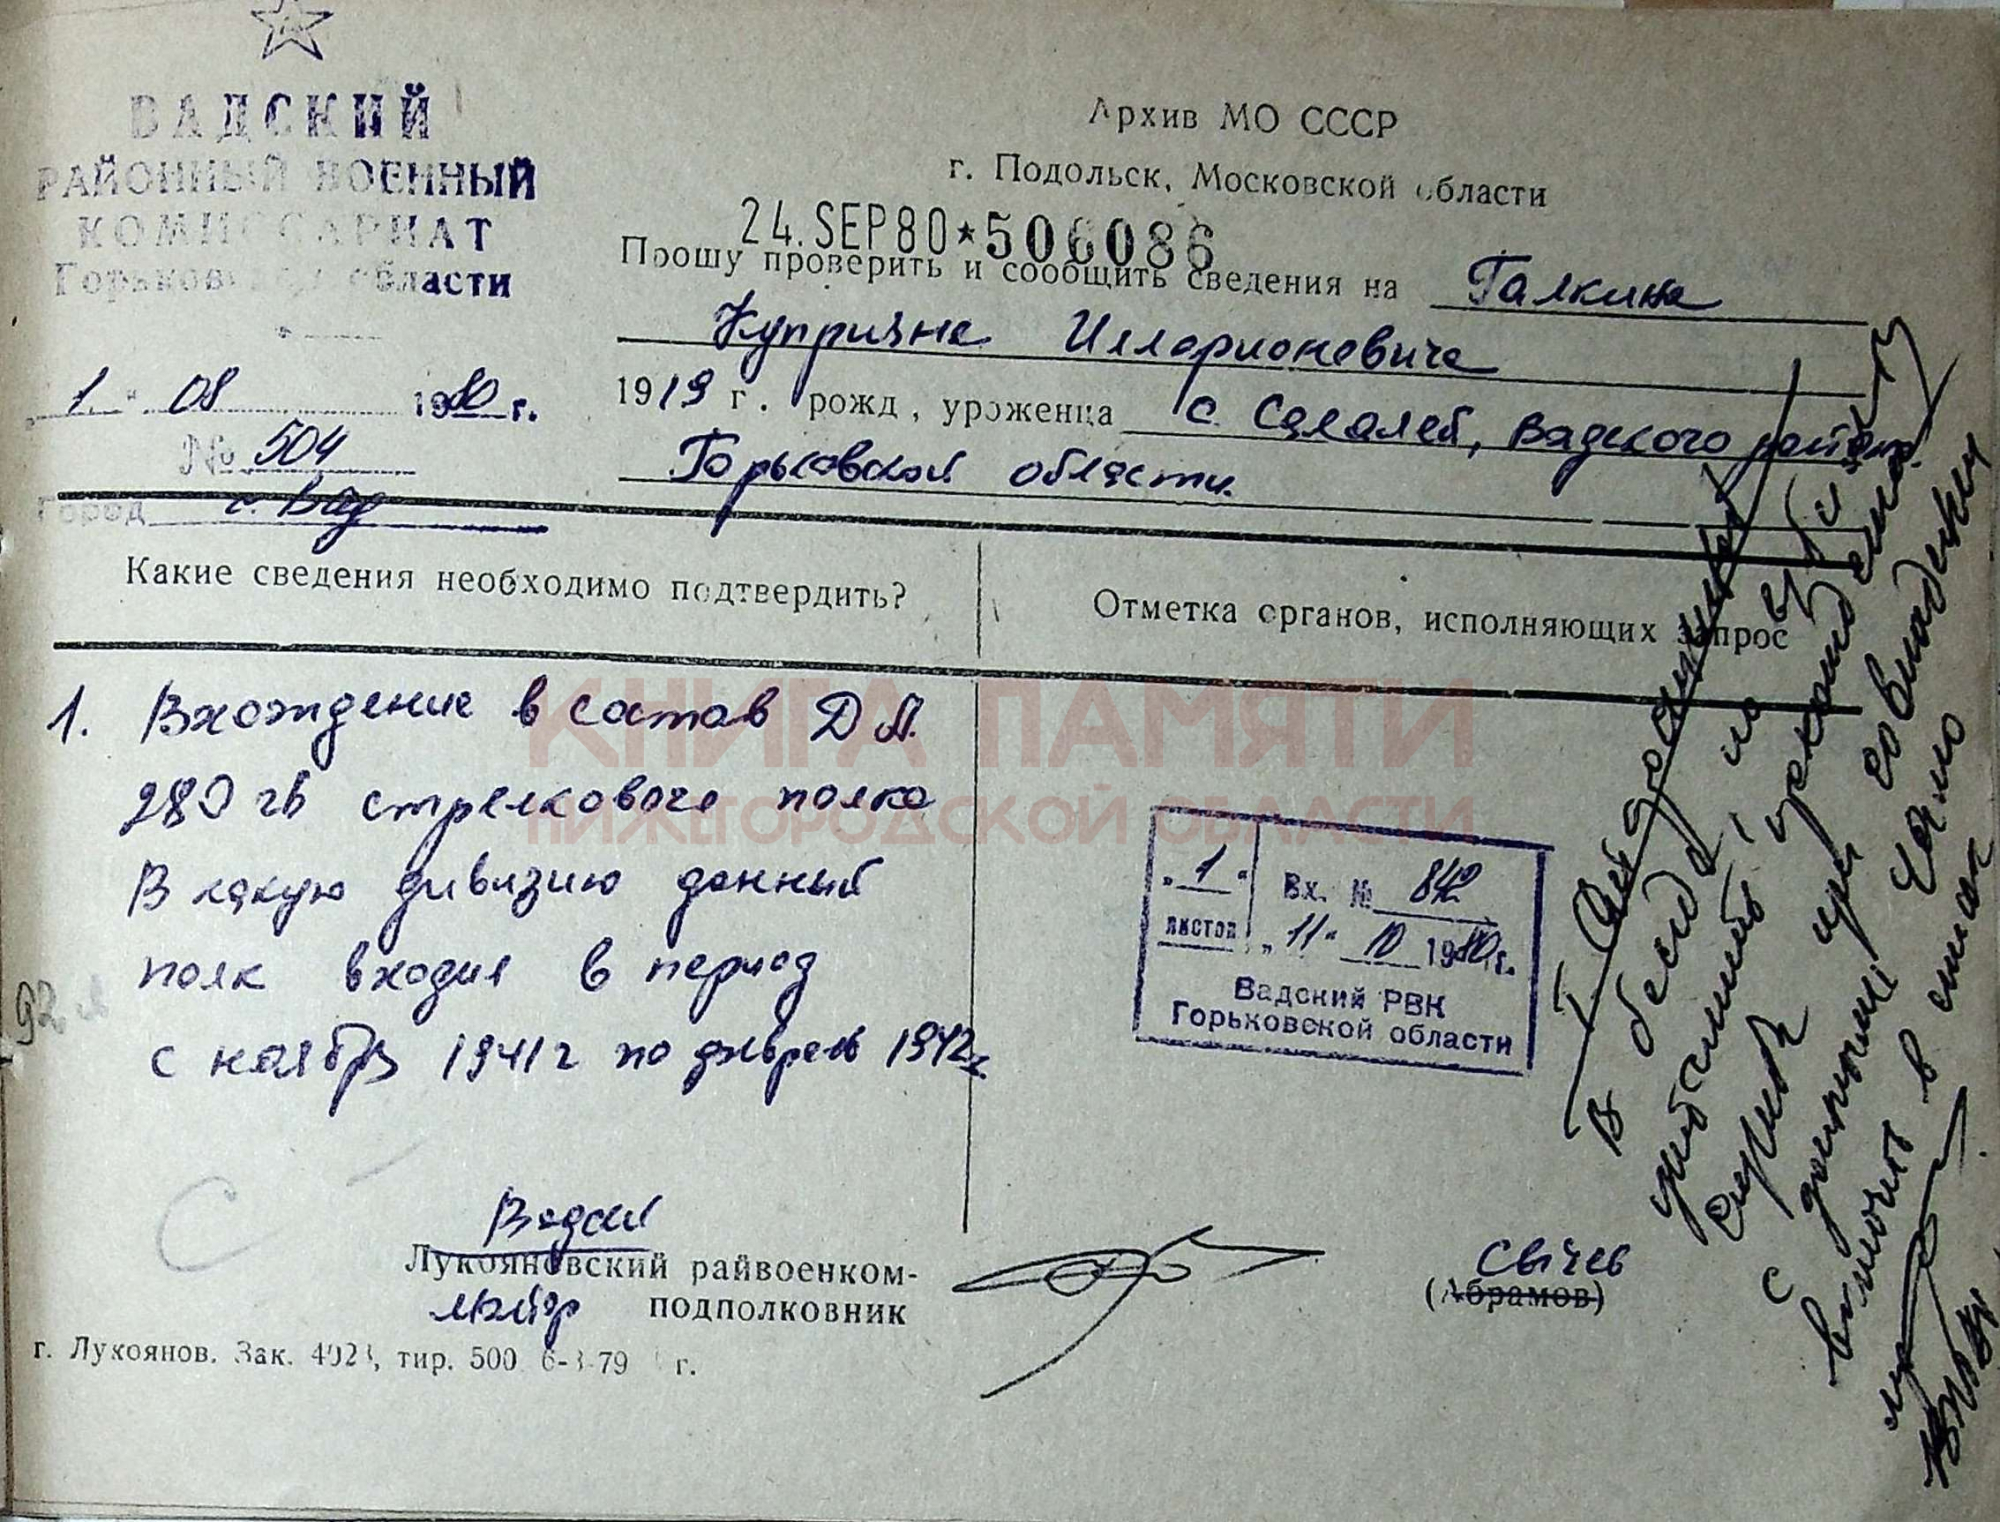 ВАДСКИЙ
РАЙОННЫЙ ВОЕННЫЙ
КОМИССАРИАТ
Горьковской области
1. 08 1980 г.
№ 504
Город с. Вад
Архив МО СССР
г. Подольск, Московской области
24. SEP 80 * 506086
Прошу проверить и сообщить сведения на Галкина
Куприяна Илларионовича
1919 г. рожд, уроженца с. Салалей, Вадского района
Горьковской области.
Какие сведения необходимо подтвердить?
Отметка органов, исполняющих запрос
1. Вхождение в состав Д.А.
280 гв стрелкового полка
В какую дивизию данный
полк входил в период
с ноября 1941 г по февраль 1942 г
КНИГА ПАМЯТИ
НИЖЕГОРОДСКОЙ ОБЛАСТИ
"1" листов
Вх. № 842
"11" 10 1980 г.
Вадский РВК
Горьковской области
В беседе
уточнить
при совпадении
с данными
включить в
92 л
Вадский
Лукояновский райвоенком-
майор подполковник
Свичев
(Абрамов)
г. Лукоянов. Зак. 4023, тир. 500 6-3-79 г.